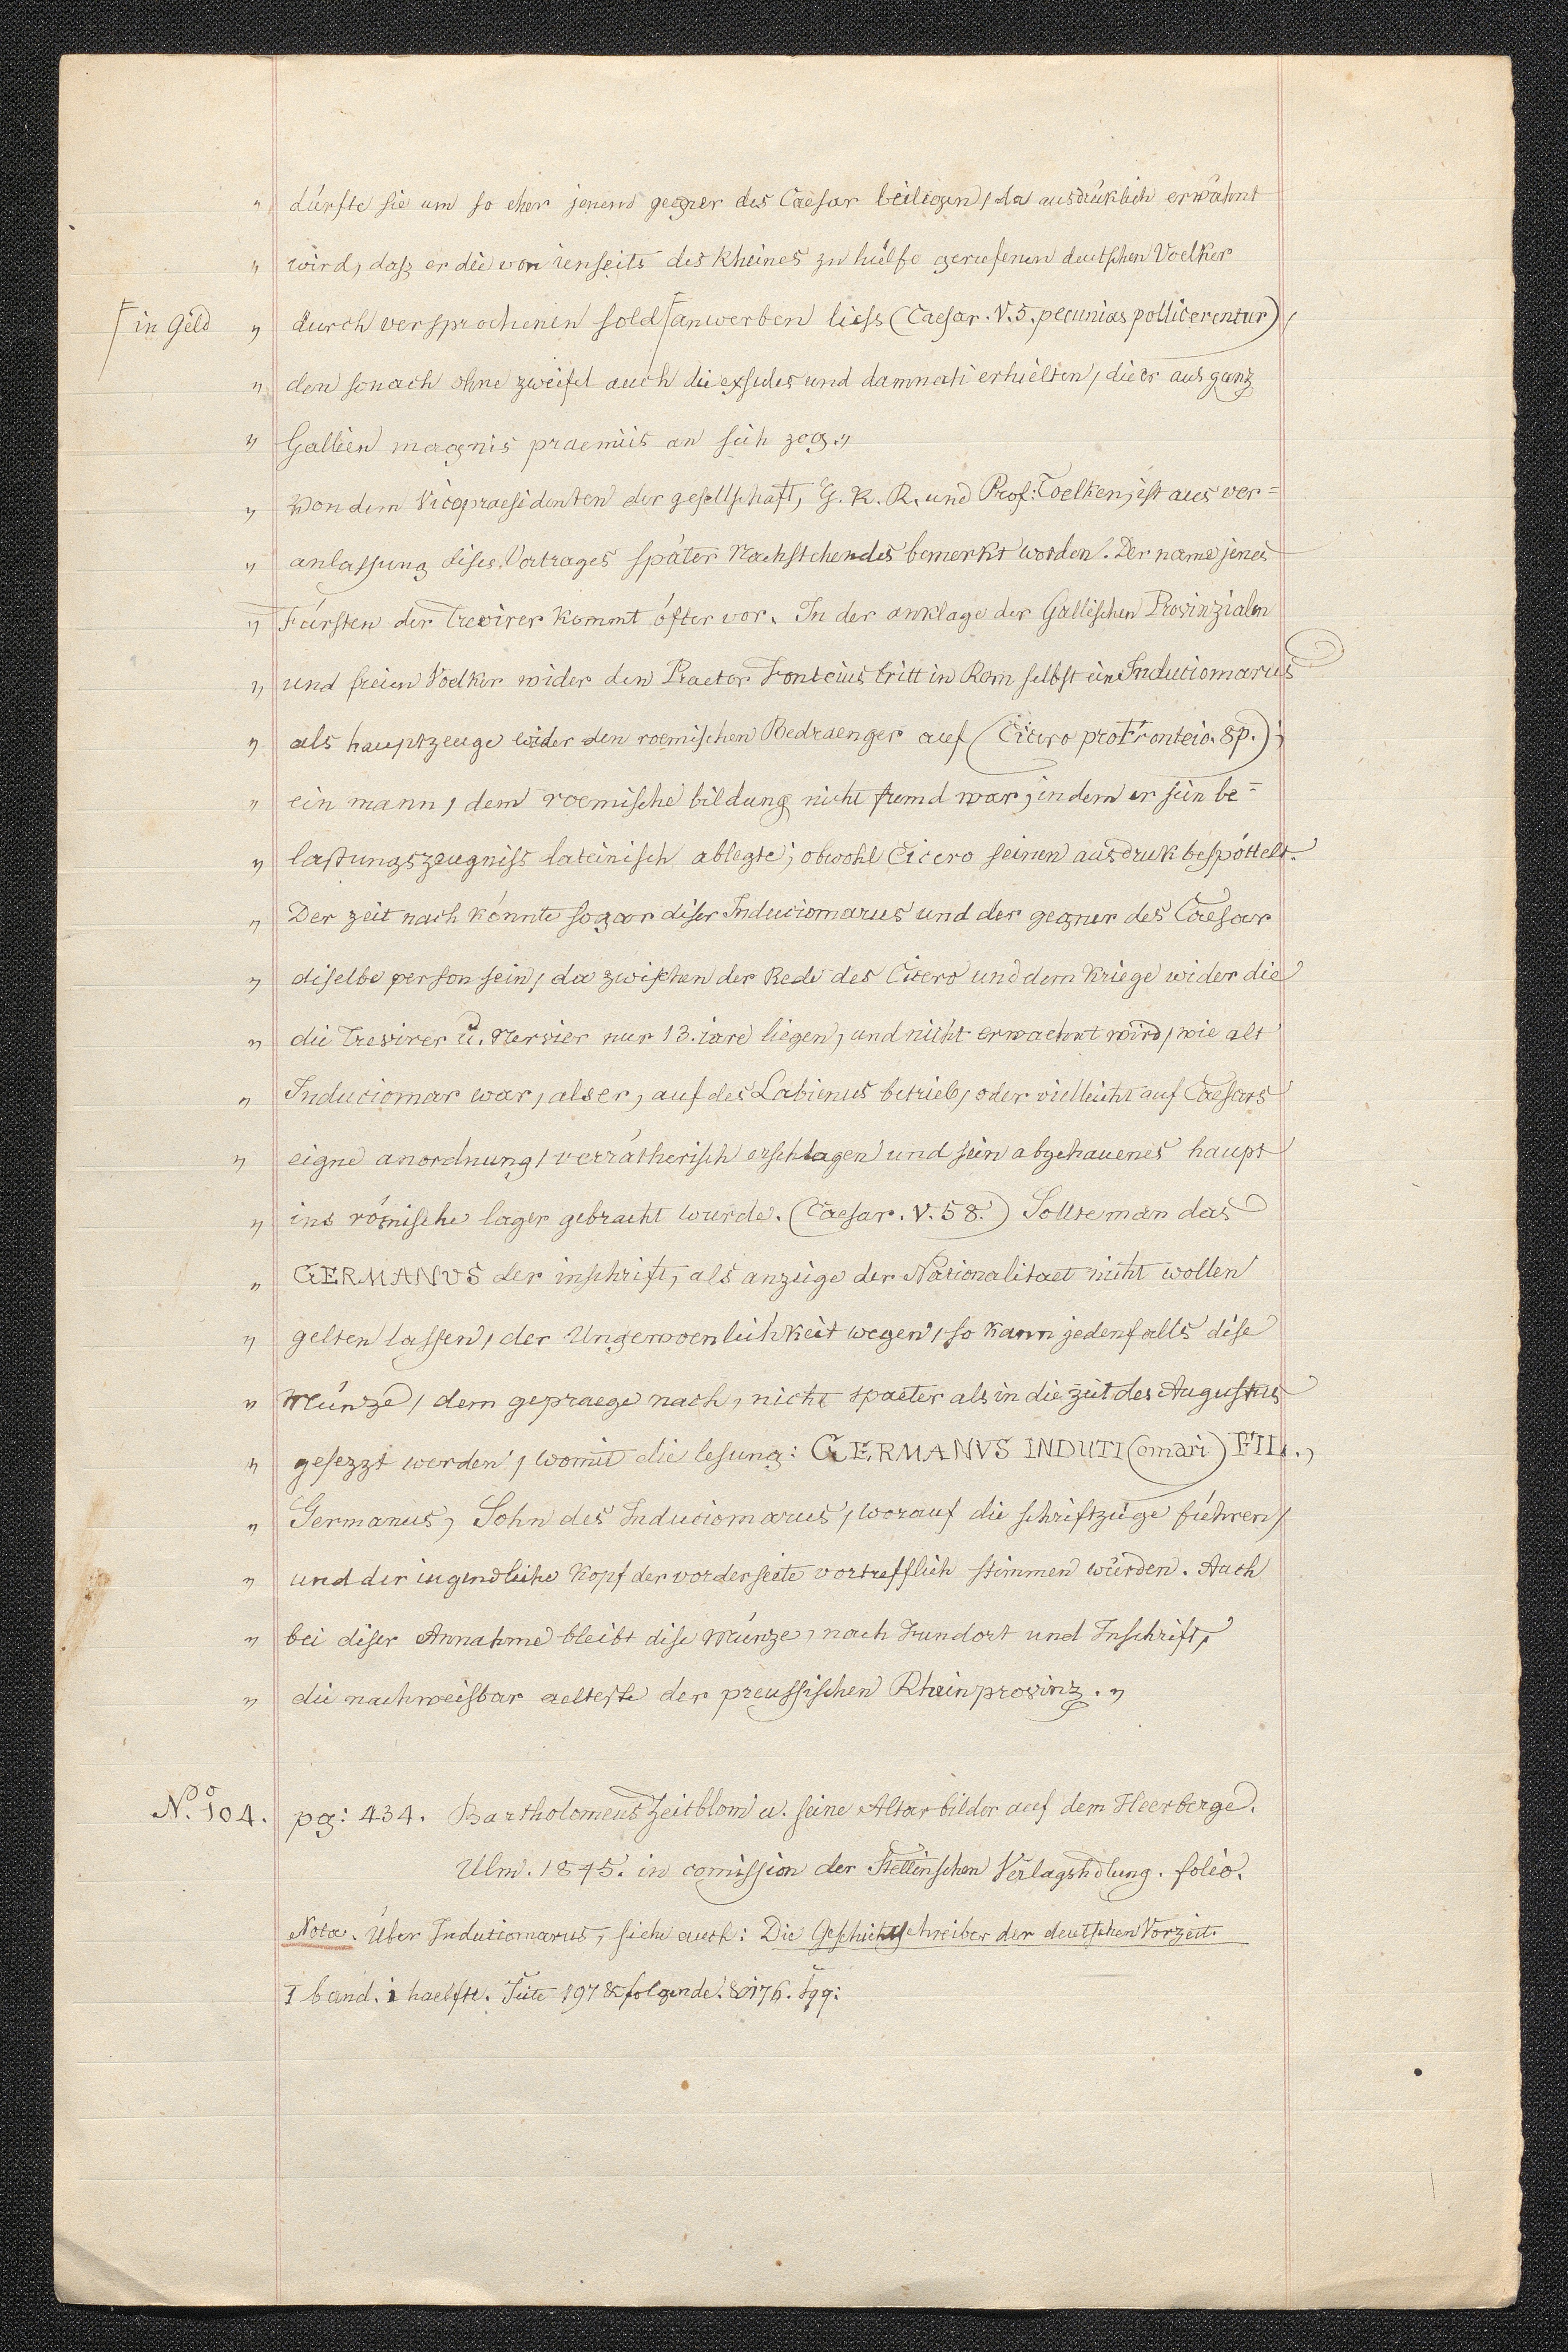 „ dürfte sie um so eher jenend gegner des Caesar beilegen, da ausdrüklich erwähnt
„ wird, daß er die von ienseits des Rheines zu hülfe gerufenen deutschen Voelker
⌈in Geld „ durch versprochenen sold⌈anwerben liess (Caesar. V. 5. pecunias pollicerentur),
„ den sonach ohne zweifel auch die exsules und damnati erhielten, die er aus ganz
„ Gallien magnis praemiis an sich zog.„
„ Von dem Vicepraesidenten der gesellschaft, G. R. R. und Prof: Toelken, ist aus ver=
„ anlassung dises Vortrages später Nachstehendes bemerkt worden. Der name jenes
„ Fürsten der Trevirer kommt öfter vor. In der anklage der Gallischen Provinzialen
„ und freien Voelker wider den Praetor Fonteius tritt in Rom selbst ein Induciomarus
„ als hauptzeuge wider den roemischen Bedraenger auf (Cicero pro Fronteio. 8 p.);
„ ein mann, dem roemische bildung nicht fremd war, indem er sein be=
„ lastungszeugniss lateinisch ablegte; obwohl Cicero seinen ausdruk bespöttelt.
„ Der zeit nach könnte sogar diser Induciomarus und der gegner des Caesar
„ diselbe person sein, da zwischen der Rede des Cicero und dem Kriege wider die
„ die Trevirer u. Nervier nur 13. iare liegen, und nicht erwaehnt wird, wie alt
„ Induciomar war, als er, auf des Labienus betrieb, oder vielleicht auf Caesars
„ eigne anordnung, verrätherisch erschlagen und sein abgehauenes haupt
„ ins römische lager gebracht wurde. (Caesar. V. 58.) Sollte man das
„ GERMANVS der inschrift, als anzeige der Nationalitaet nicht wollen
„ gelten lassen, der Ungewoenlichkeit wegen, so kann jedenfalls dise
„ Münze, dem gepraege nach, nicht spaeter als in die zeit des Augustus
„ gesezzt werden, womit die lesung: GERMANVS INDUTI(omari) FIL.,
„ Germanus, Sohn des Induciomarus, worauf die schriftzüge führen,
„ und der iugendliche Kopf der vorderseite vortrefflich stimmen würden. Auch
„ bei diser Annahme bleibt dise Münze, nach Fundort und Inschrift,
„ die nachweisbar aelteste der preussischen Rheinprovinz. „
N.o 104. pg: 434. Bartholomeus Zeitblom u. seine Altarbilder auf dem Heerberge.
Ulm. 1845. in comission der Stettinschen Verlagshdlung. folio.
Nota. Über Indutiomarus, siehe auch: Die Geschichtschreiber der deutschen Vorzeit.
I band. 1 haelfte. Seite 197 & folgende. & 176. sqq: